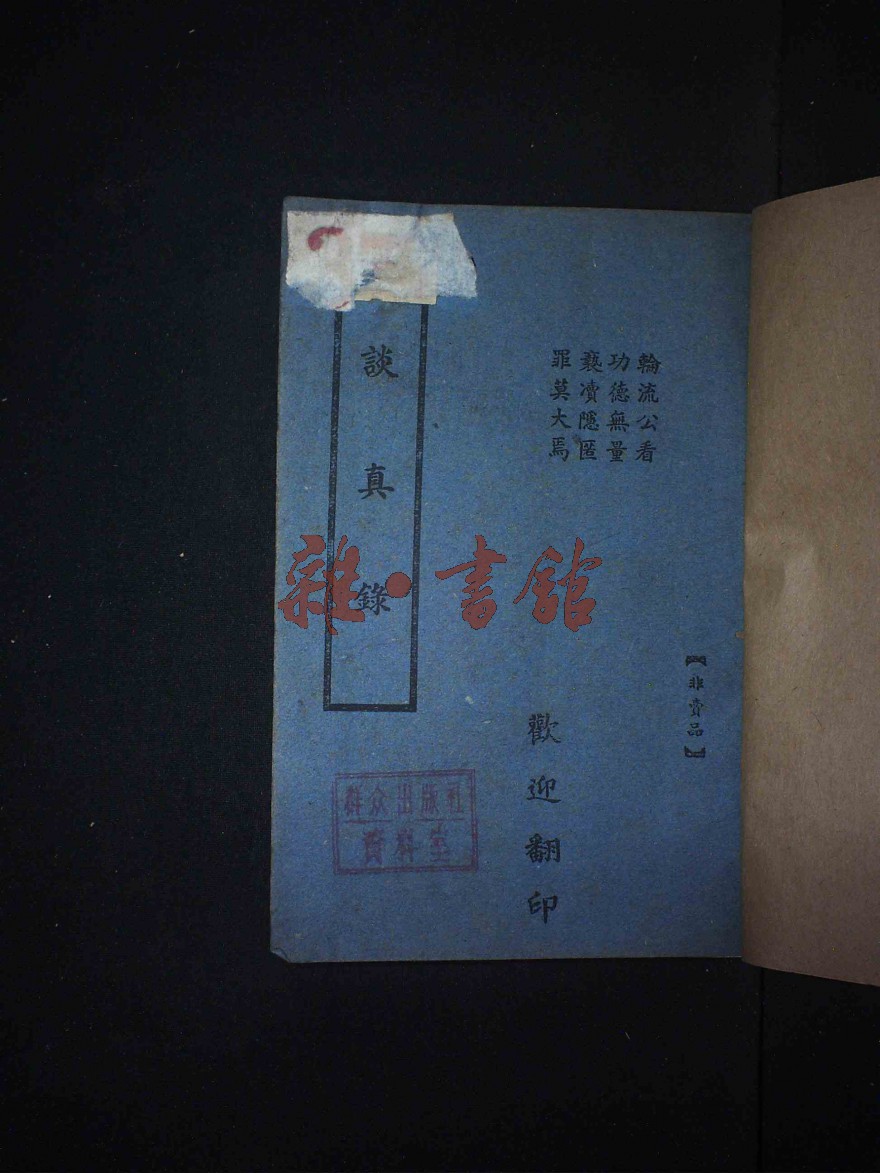 【非賣品】
輪流公看
功德無量
褻凟隱匿
罪莫大焉
歡迎翻印
談真錄
群众出版社
資料室
雜·書館